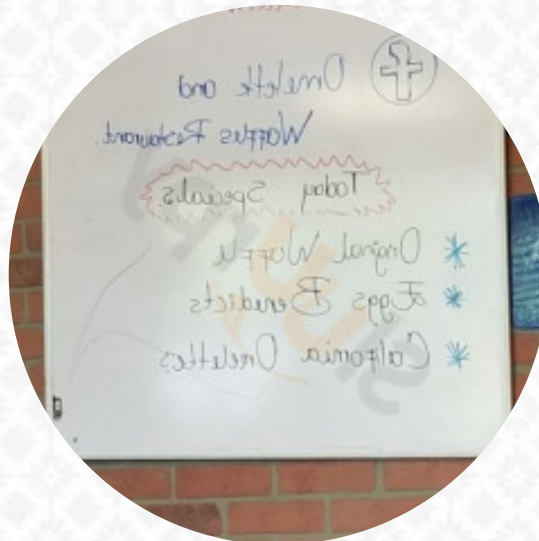 Omelette and
Waffles Restaurant.
Today Specials
Orginal Waffle
Eggs Benedicts
California Omelettes